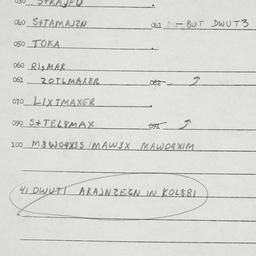 030 S+RAJFU
040 S+TAMAJZN 061 - BUT DWUT3
050 TOKA
060 RI3MAR
061 ZOTLMAXER 062
070 LIXTMAXER
090 S+TEL8MAX 091
100 M3WO9X3S MAW3X MAWO9XIM
41 DWUT1 ARAJNZEGN IN KOL881